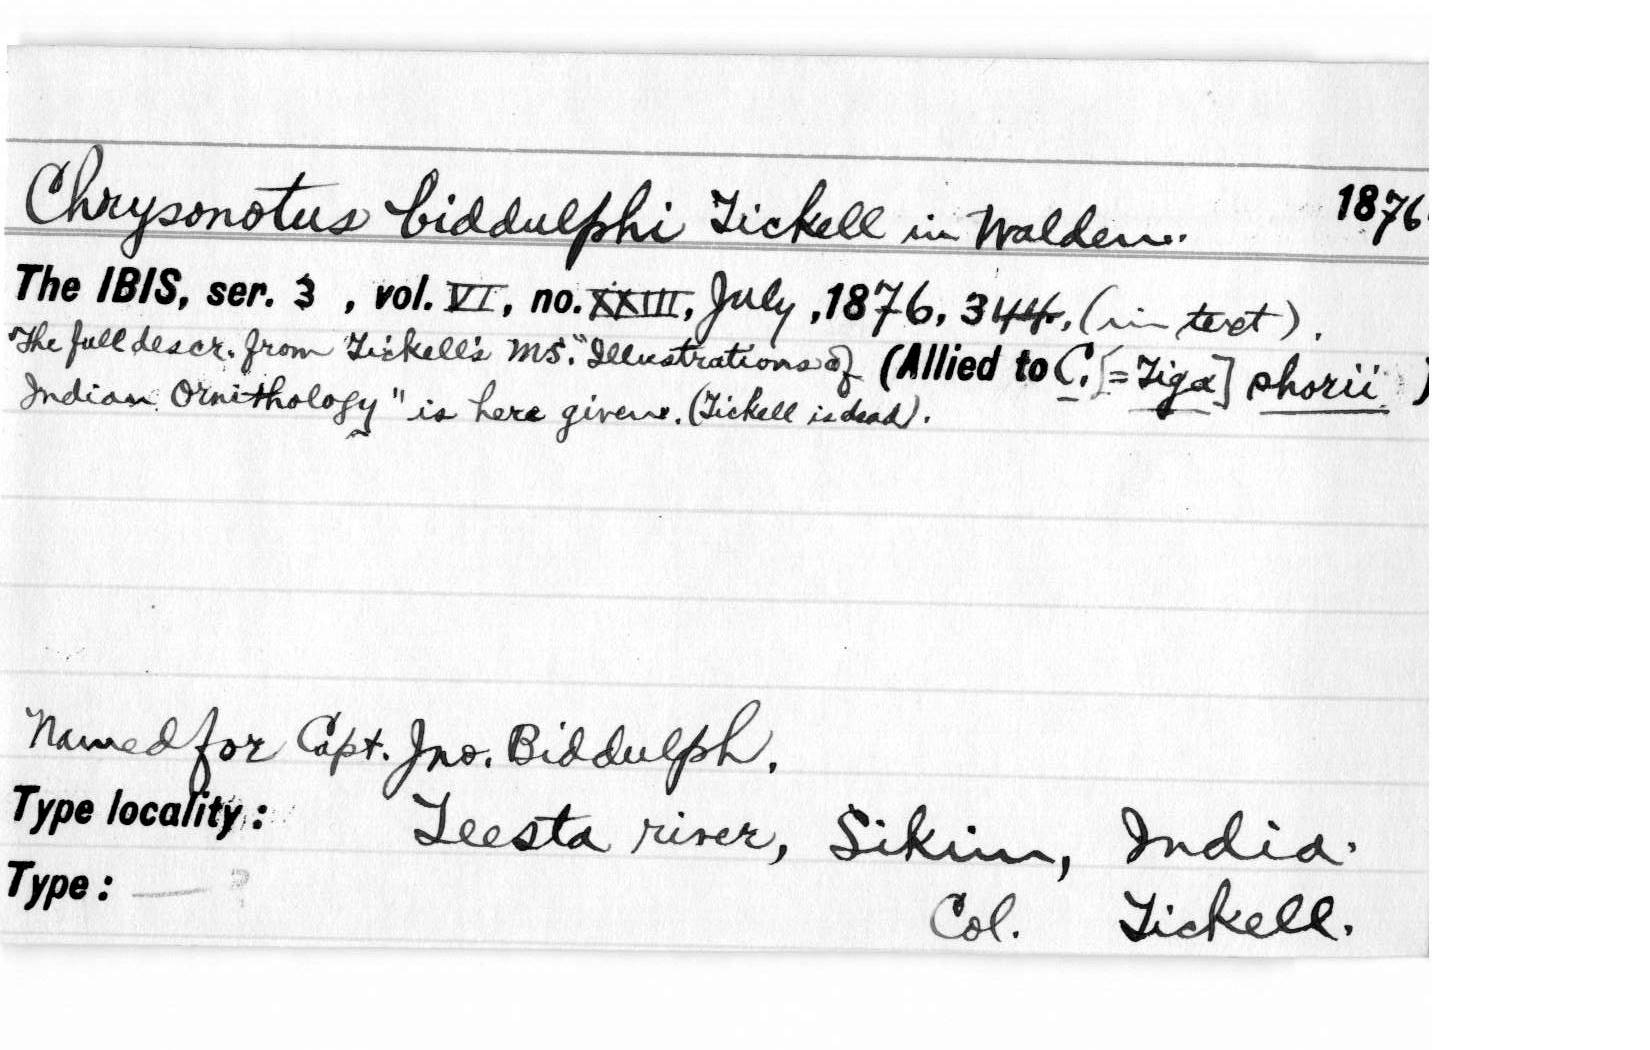 Chrysonotus biddulphi Tickell in Walden. 1876.
The IBIS, ser. 3 , vol. VI, no. XXIII, July ,1876, 344, (in text).
The full descr. from Tickell's MS. "Illustrations of (Allied to C. [=Tiga] shorii )
Indian Ornithology" is here given. (Tickell is dead).
Named for Capt. Jno. Biddulph.
Type locality: Teesta river, Sikim, India.
Type: — ?
Col. Tickell.